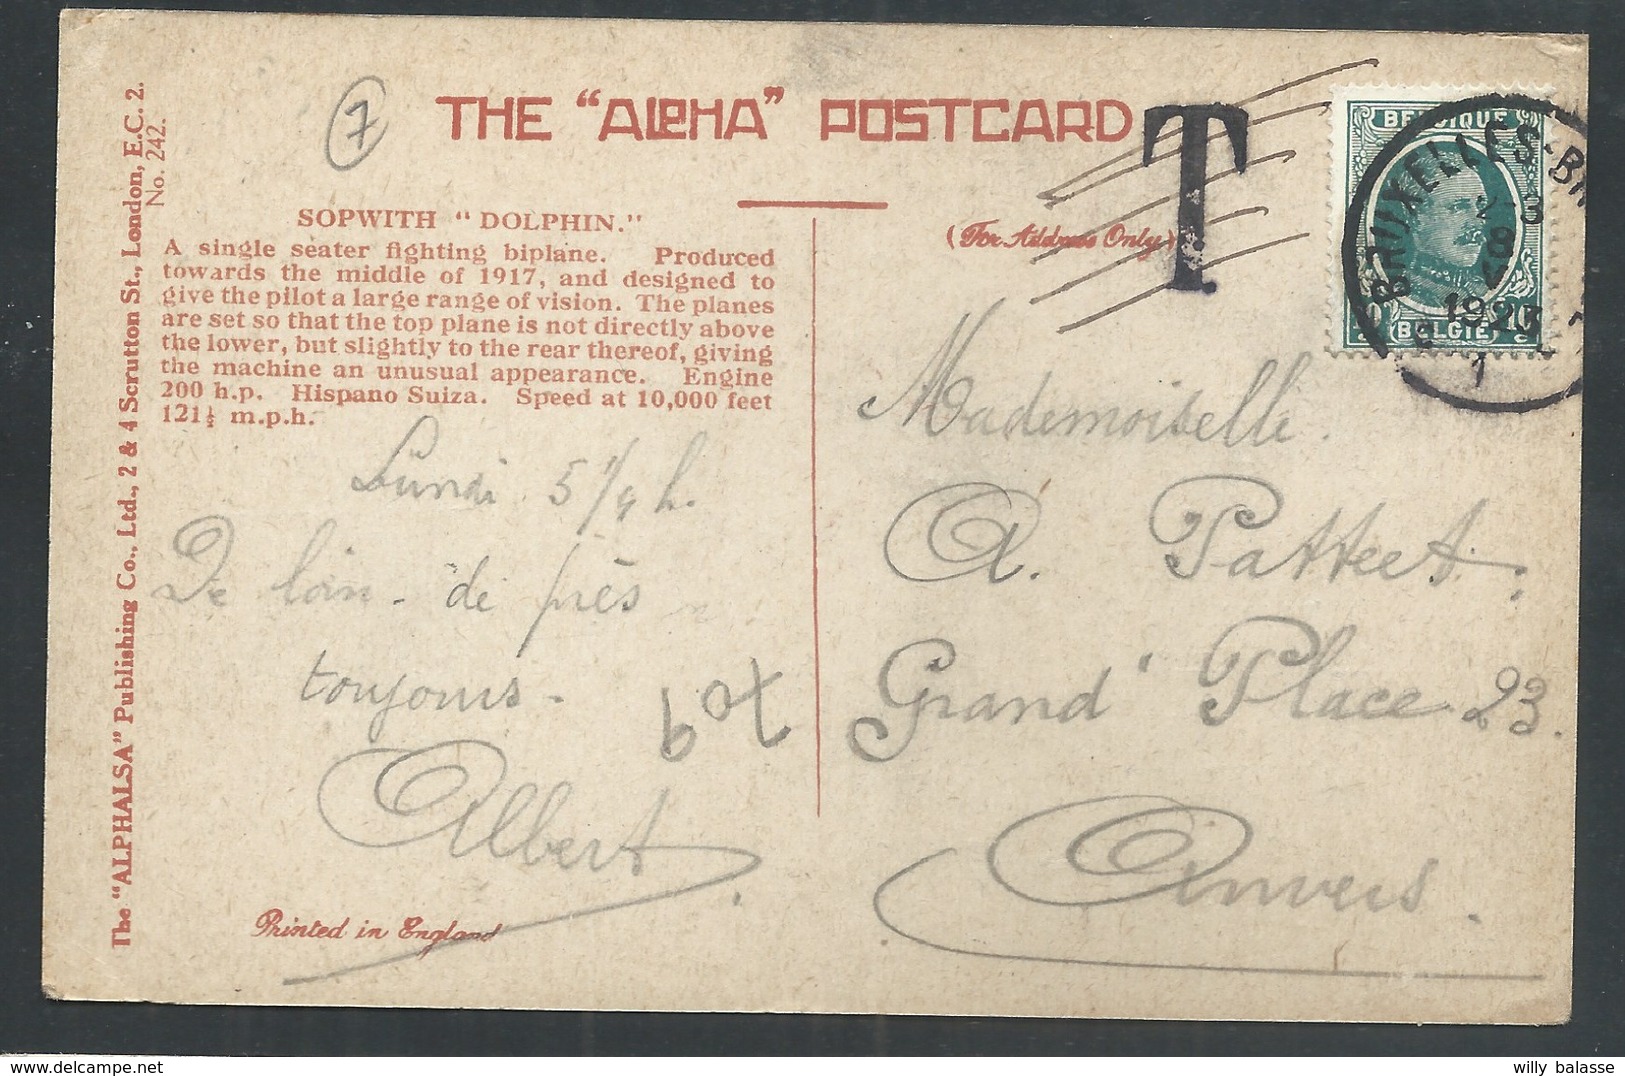 THE "ALPHA" POSTCARD
T
BELGIQUE
BELGIË
BRUXELLES-
1923
1
7
The "ALPHALSA" Publishing Co., Ltd., 2 & 4 Scrutton St., London, E.C. 2.
No. 242.
SOPWITH "DOLPHIN."
A single seater fighting biplane. Produced
towards the middle of 1917, and designed to
give the pilot a large range of vision. The planes
are set so that the top plane is not directly above
the lower, but slightly to the rear thereof, giving
the machine an unusual appearance. Engine
200 h.p. Hispano Suiza. Speed at 10,000 feet
121½ m.p.h.
(For Address Only)
Lundi 5 1/4 h.
De loin - de près
toujours -
Albert.
Printed in England
Mademoiselle
A. Patteet.
Grand' Place 23.
Anvers.
willy balasse